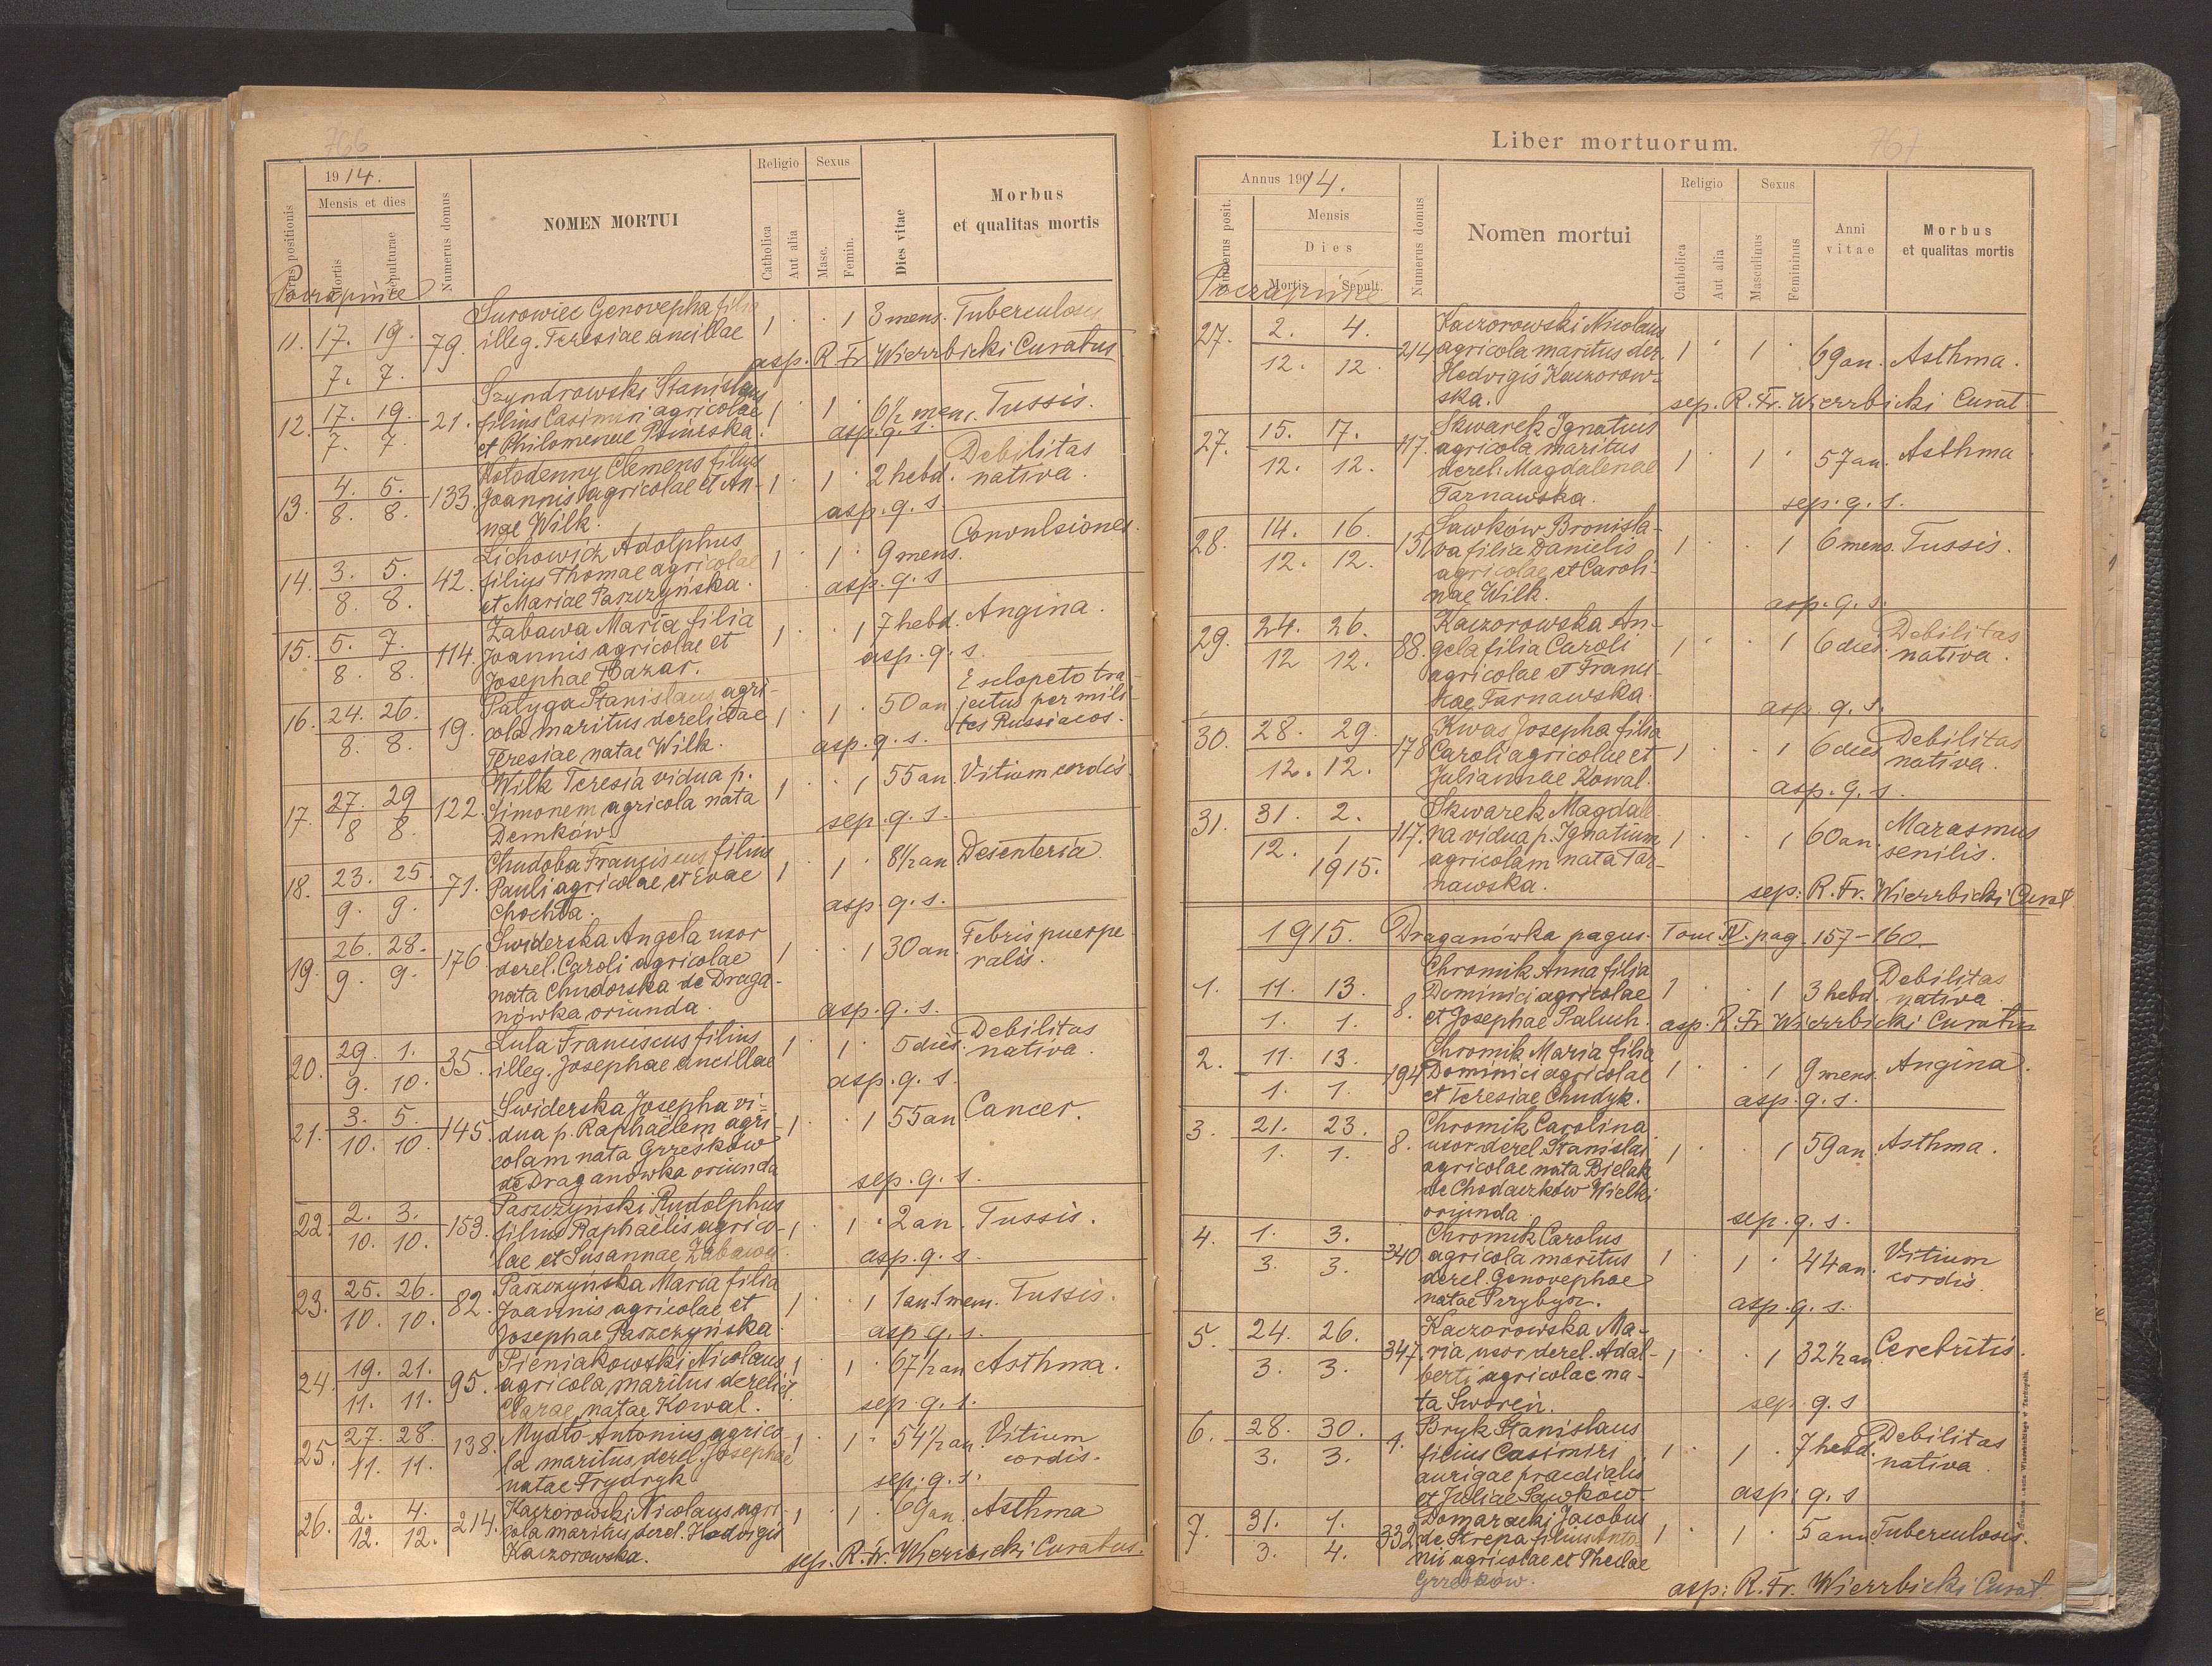 766
1914.
Mensis et dies
Mortis
Sepulturae
Numerus domus
NOMEN MORTUI
Religio
Catholica
Aut alia
Sexus
Masc.
Femin.
Dies vitae
Morbus
et qualitas mortis
Poczapińce
11. 17. 19. 7. 7. 79.
Surowiec Genovepha filia
illeg. Teresiae ancillae
1 1 3 mens. Tuberculosis
asp. R. Fr. Wierzbicki Curatus
12. 17. 19. 7. 7. 21.
Szyndrowski Stanislaus
filius Casimiri agricolae
et Philomenae
1 1 6 1/2 mens. Tussis.
asp. q. s.
13. 4. 5. 8. 8. 133.
Kołodenny Clemens filius
Joannis agricolae et An-
nae Wilk.
1 1 2 hebd. Debilitas
nativa.
asp. q. s.
14. 3. 5. 8. 8. 42.
Lichowicz Adolphus
filius Thomae agricolae
et Mariae Paszczyńska.
1 1 9 mens. Convulsiones.
asp. q. s
15. 5. 7. 8. 8. 114.
Zabawa Maria filia
Joannis agricolae et
Josephae Bazar.
1 1 7 hebd. Angina.
asp. q. s.
16. 24. 26. 8. 8. 19.
Pałyga Stanislaus agri-
cola maritus derelictae
Teresiae natae Wilk.
1 1 50 an E sclopeto tra-
jectus per mili-
tes Russiacos.
asp. q. s.
17. 27. 29 8 8. 122.
Wilk Teresia vidua p.
Simonem agricola nata
Demków
1 1 55 an. Vitium cordis.
sep. q. s.
18. 23. 25. 9. 9. 71.
Chudoba Franciscus filius
Pauli agricolae et Evae
Chochta.
1 1 8 1/2 an Desenteria.
asp. q. s.
19. 26. 28. 9. 9. 176.
Swiderska Angela uxor
derel. Caroli agricolae
nata Chudorska de Draga-
nówka oriunda.
1 1 30 an. Febris puerpe
ralis.
asp. q. s.
20. 29. 1. 9. 10. 35.
Lula Franciscus filius
illeg. Josephae ancillae
1 1 5 dies. Debilitas
nativa.
asp. q. s.
21. 3. 5. 10. 10. 145.
Swiderska Josepha vi-
dua p. Raphaelem agri-
colam nata Grześków
de Draganówka oriunda
1 1 55 an Cancer.
sep. q. s.
22. 2. 3. 10. 10. 153.
Paszczyński Rudolphus
filius Raphaëlis agrico-
lae et Susannae Zabawa.
1 1 2 an. Tussis.
asp. q. s.
23. 25. 26. 10. 10. 82.
Paszczyńska Maria filia
Joannis agricolae et
Josephae Paszczyńska.
1 1 1 an. 1 mens. Tussis.
asp q. s.
24. 19. 21. 11. 11. 95.
Pieniakowski Nicolaus
agricola maritus derelict.
Clarae natae Kowal.
1 1 67 1/2 an Asthma.
sep. q. s.
25. 27. 28. 11. 11. 138.
Mydło Antonius agrico-
la maritus derel. Josephae
natae Frydryk
1 1 54 1/2 an. Vitium
cordis.
sep. q. s.
26. 2. 4. 12. 12. 214.
Kaczorowski Nicolaus agri-
cola maritus derel. Hedvigis
Kaczorowska.
1 1 69 an. Asthma
sep. R. Fr. Wierzbicki Curatus.
767
Liber mortuorum.
Annus 1914.
Numerus posit.
Mensis
Dies
Mortis
Sepult.
Numerus domus
Nomen mortui
Religio
Catholica
Aut alia
Sexus
Masculinus
Femininus
Anni
vitae
Morbus
et qualitas mortis
Poczapińce
27. 2. 4. 12. 12. 214.
Kaczorowski Nicolaus
agricola maritus der.
Hedvigis Kaczorow-
ska.
1 1 69 an. Asthma.
sep. R. Fr. Wierzbicki Curat.
27. 15. 17. 12. 12. 117.
Skwarek Ignatius
agricola maritus
derel. Magdalenae
Tarnawska.
1 1 57 an. Asthma
sep. q. s.
28. 14. 16. 12. 12. 151
Sawków Bronisla-
va filia Danielis
agricolae et Caroli-
nae Wilk.
1 1 6 mens. Tussis.
asp. q. s.
29. 24. 26. 12 12. 88.
Kaczorowska An-
gela filia Caroli
agricolae et Francis-
cae Tarnawska.
1 1 6 dies. Debilitas
nativa.
asp. q. s.
30. 28. 29. 12. 12. 178
Kwas Josepha filia
Caroli agricolae et
Juliannae Kowal.
1 1 6 dies Debilitas
nativa.
asp. q. s.
31. 31. 2. 12. 1 1915. 117.
Skwarek Magdale
na vidua p. Ignatium
agricolam nata Tar-
nawska.
1 1 60 an. Marasmus
senilis.
sep. R. Fr. Wierzbicki Curat.
1915. Draganówka pagus. Tom IV. pag. 157-160.
1. 11. 13. 1. 1. 8.
Chromik Anna filia
Dominici agricolae
et Josephae Paluch.
1 1 3 hebd. Debilitas
nativa
asp. R. Fr. Wierzbicki Curatus
2. 11. 13. 1. 1. 194
Chromik Maria filia
Dominici agricolae
et Teresiae Chudyk.
1 1 9 mens. Angina.
asp. q. s.
3. 21. 23. 1. 1. 8.
Chromik Carolina
uxor derel. Stanislai
agricolae nata Bielak
de Chodaczków Wielki
oriunda.
1 1 59 an. Asthma.
sep. q. s.
4. 1. 3. 3. 3. 340.
Chromik Carolus
agricola maritus
derel. Genovephae
natae Przybysz.
1 1 44 an. Vitium
cordis
asp. q. s.
5. 24. 26. 3. 3. 347.
Kaczorowska Ma-
ria uxor derel. Adal-
berti agricolae na-
ta Sworeń.
1 1 32 1/2 an. Cerebritis.
sep. q. s
6. 28. 30. 3. 3. 1.
Bryk Stanislaus
filius Casimiri
aurigae praedialis
et Juliae Sawków.
1 1 7 hebd. Debilitas
nativa.
asp. q. s
7. 31. 1. 3. 4. 332
Domaracki Jacobus
de Krepa filius Anto-
nii agricolae et Theclae
Grześków.
1 1 5 ann. Tuberculosis.
asp. R. Fr. Wierzbicki Curat.